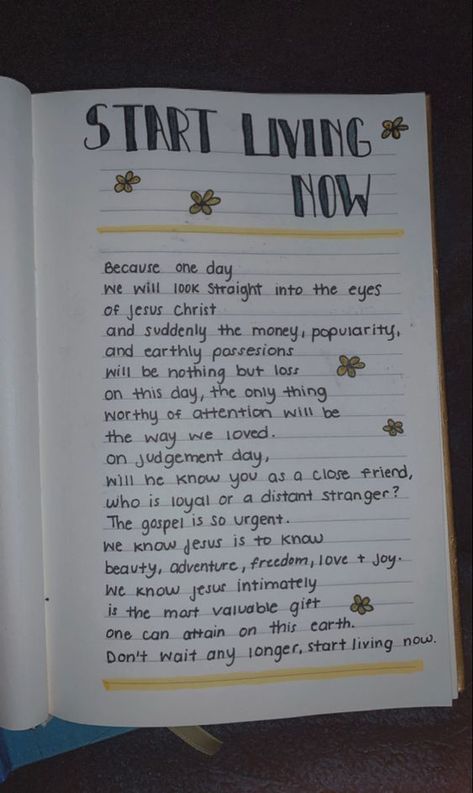 START LIVING
NOW
Because one day
we will look straight into the eyes
of Jesus Christ
and suddenly the money, popularity,
and earthly possesions
will be nothing but loss
on this day, the only thing
worthy of attention will be
the way we loved.
on judgement day,
will he know you as a close friend,
who is loyal or a distant stranger?
The gospel is so urgent.
we know Jesus is to know
beauty, adventure, freedom, love + joy.
we know Jesus intimately
is the most valuable gift
one can attain on this earth.
Don't wait any longer, start living now.